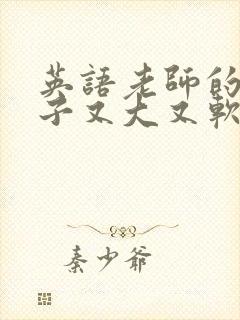 英語老師的
子又大又軟
秦少爺